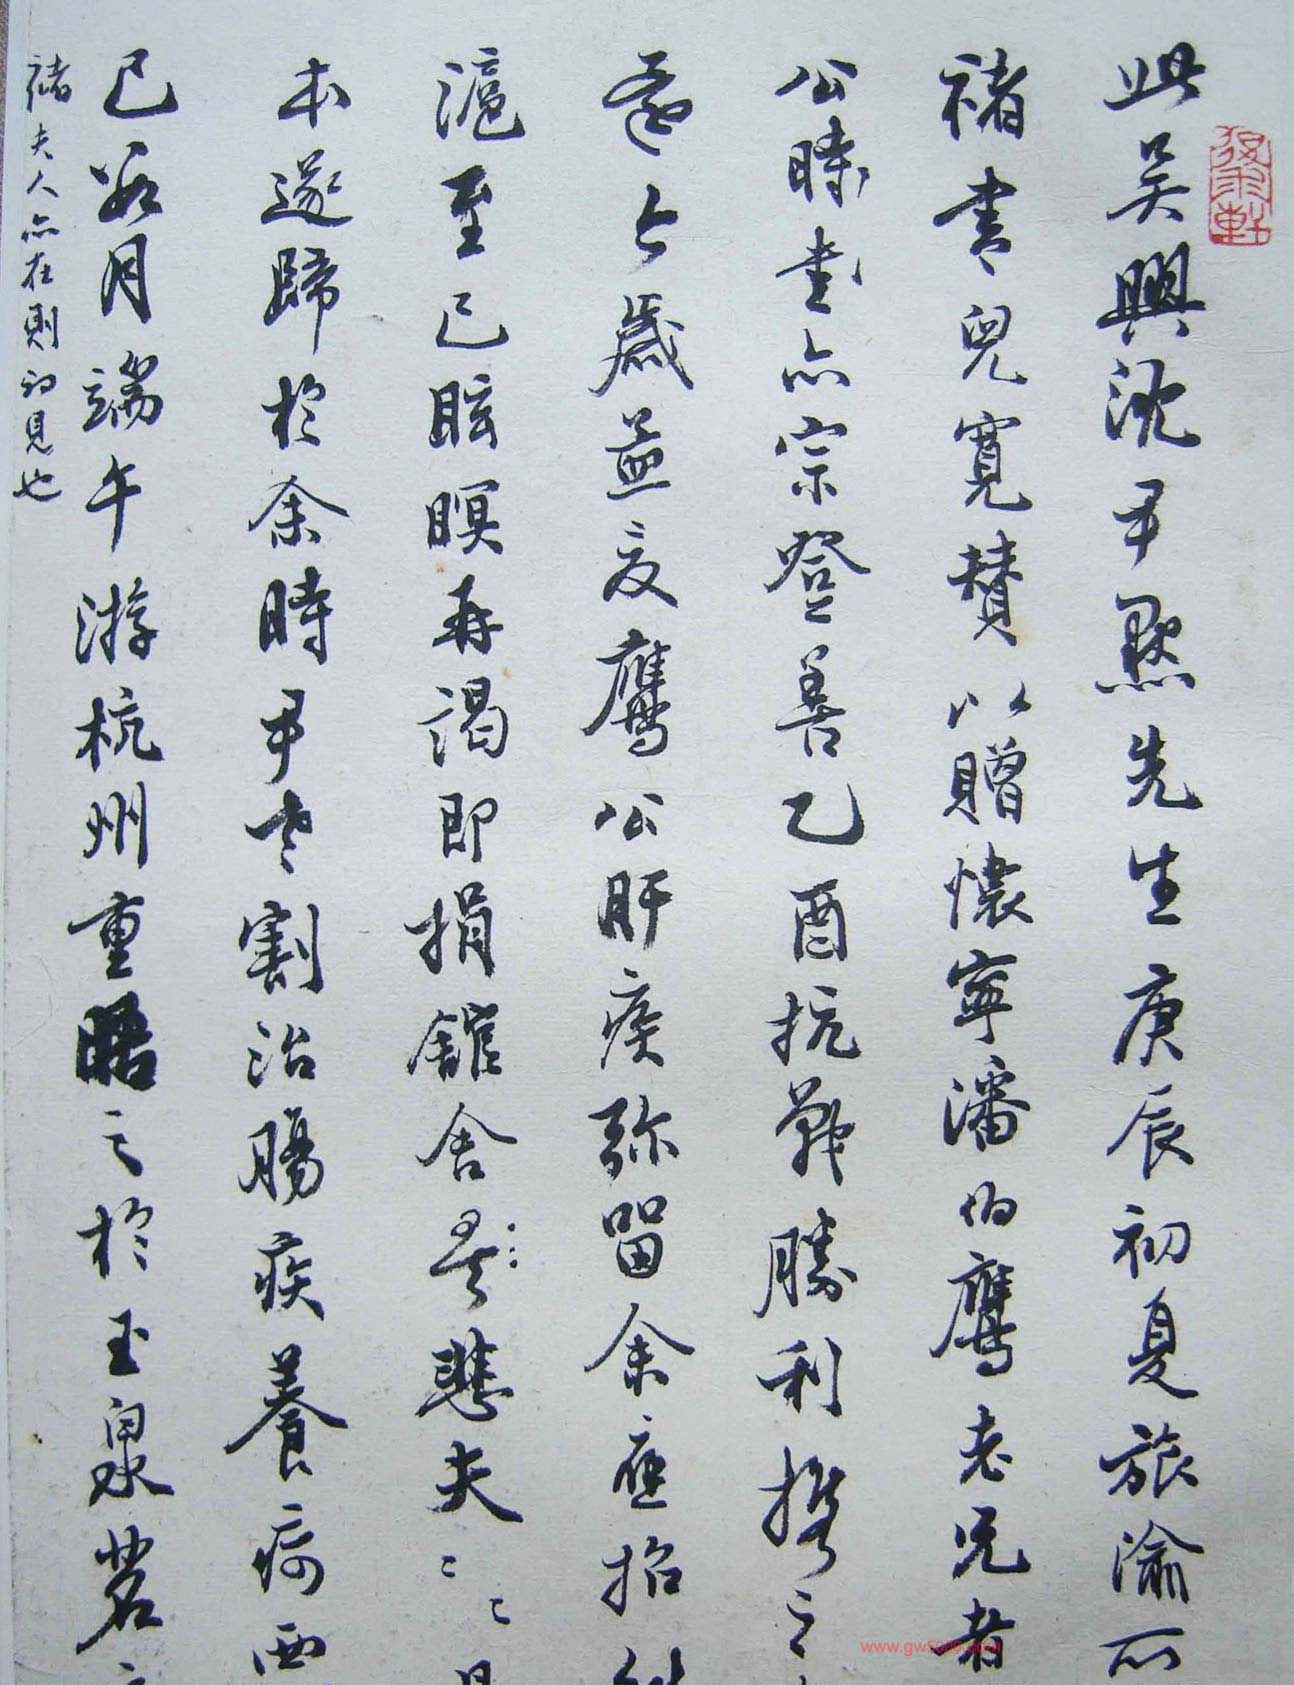 此吳興沈尹默先生庚辰初夏旅渝所
褚書兒寬贊以贈懷寧潘伯鷹老兄者
公昧書亦宗登善乙酉抗戰勝利携之
今歲益友鷹公肝疾弥留余應招
滬至已眩瞑再謁即捐館舍矣悲夫
本遂歸於余時尹老割治腸疾養痾西
已如月端午游杭州重晤之於玉泉茗
褚夫人亦在則初見也
www.gw5000.com